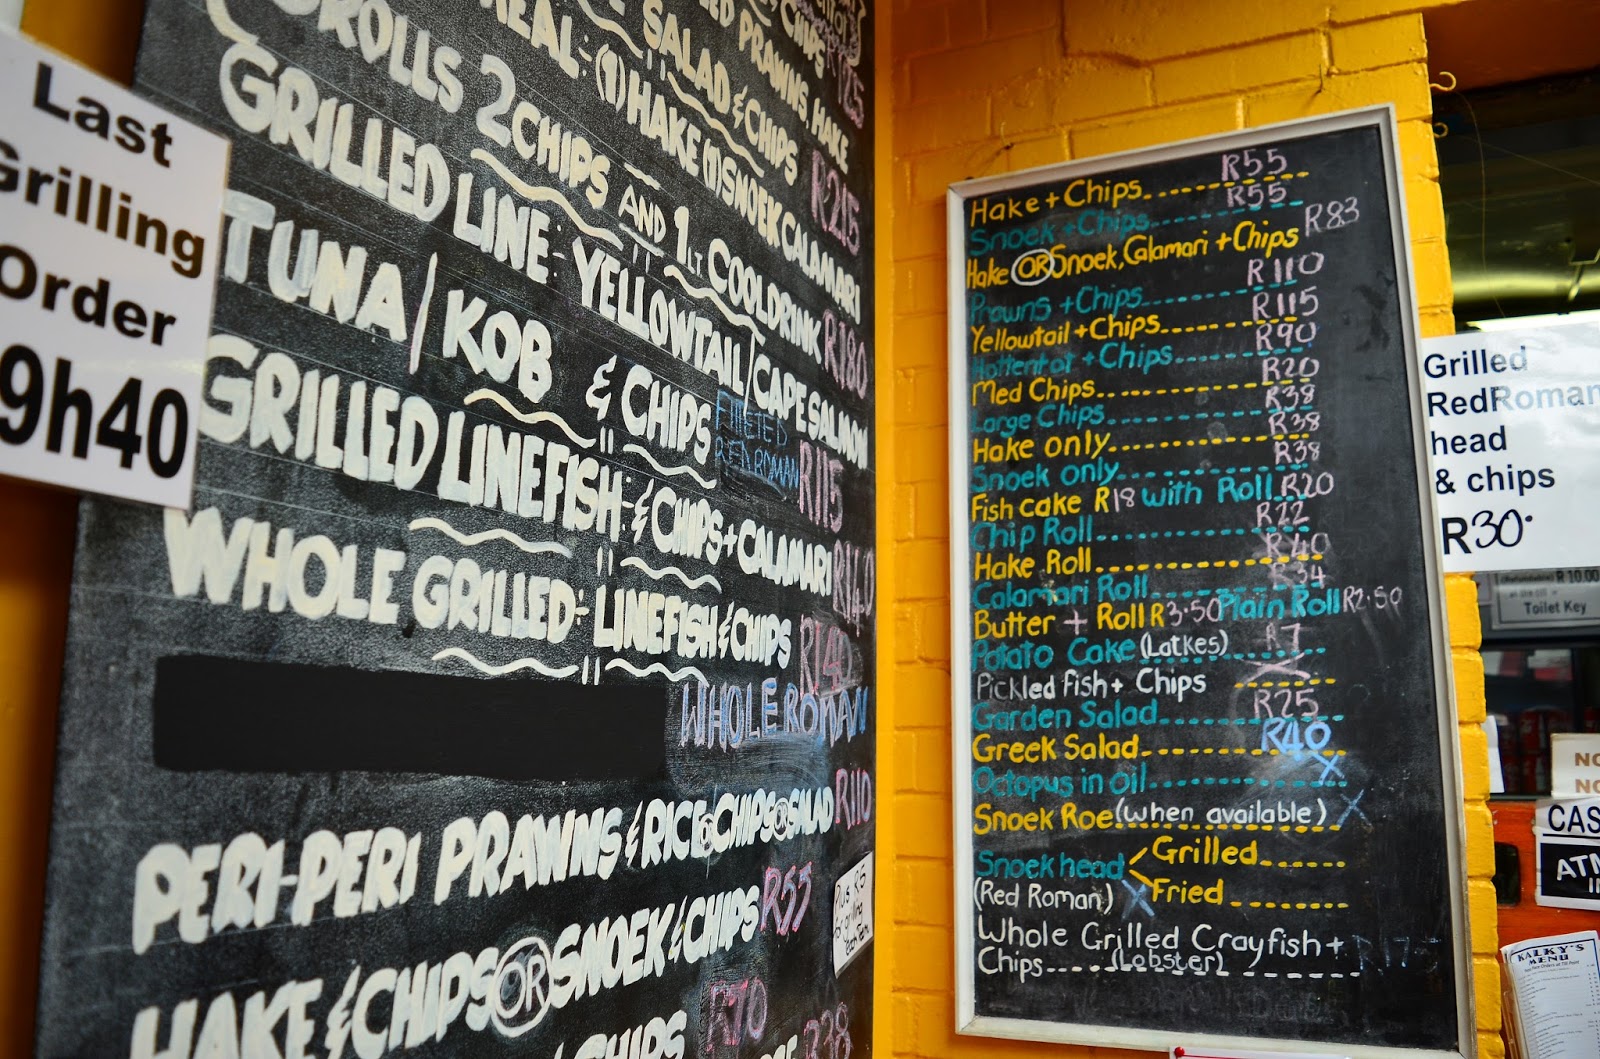 Last
Grilling
Order
19h40
ROLLS 2 CHIPS AND 1LT COOLDRINK R180
MEAL: (1) HAKE (1) SNOEK CALAMARI
SALAD & CHIPS R215
PRAWNS, HAKE
CHIPS
GRILLED LINE: YELLOWTAIL/CAPE SALMON
TUNA/KOB & CHIPS R115
FILLETED
RED ROMAN
GRILLED LINEFISH: & CHIPS + CALAMARI R140
WHOLE GRILLED: LINEFISH & CHIPS R140
WHOLE ROMAN
PERI-PERI PRAWNS & RICE OR CHIPS OR SALAD R110
HAKE & CHIPS OR SNOEK & CHIPS R55
CHIPS R70
R38
Plus R5
for grilling
each item
Hake + Chips R55
Snoek + Chips R55
Hake OR Snoek, Calamari + Chips R83
Prawns + Chips R110
Yellowtail + Chips R115
Hottentot + Chips R90
Med Chips R20
Large Chips R38
Hake only R38
Snoek only R38
Fish cake R18 with Roll R20
Chip Roll R22
Hake Roll R40
Calamari Roll R34
Butter + Roll R3.50 Plain Roll R2.50
Potato Cake (Latkes) R7
Pickled fish + Chips
Garden Salad R25
Greek Salad R40
Octopus in oil
Snoek Roe (when available)
Snoek head Grilled
(Red Roman) Fried
Whole Grilled Crayfish +
Chips (Lobster)
Grilled
RedRoman
head
& chips
R30.
R 10.00
Toilet Key
NO
NO
CAS
ATM
KALKY'S
MENU